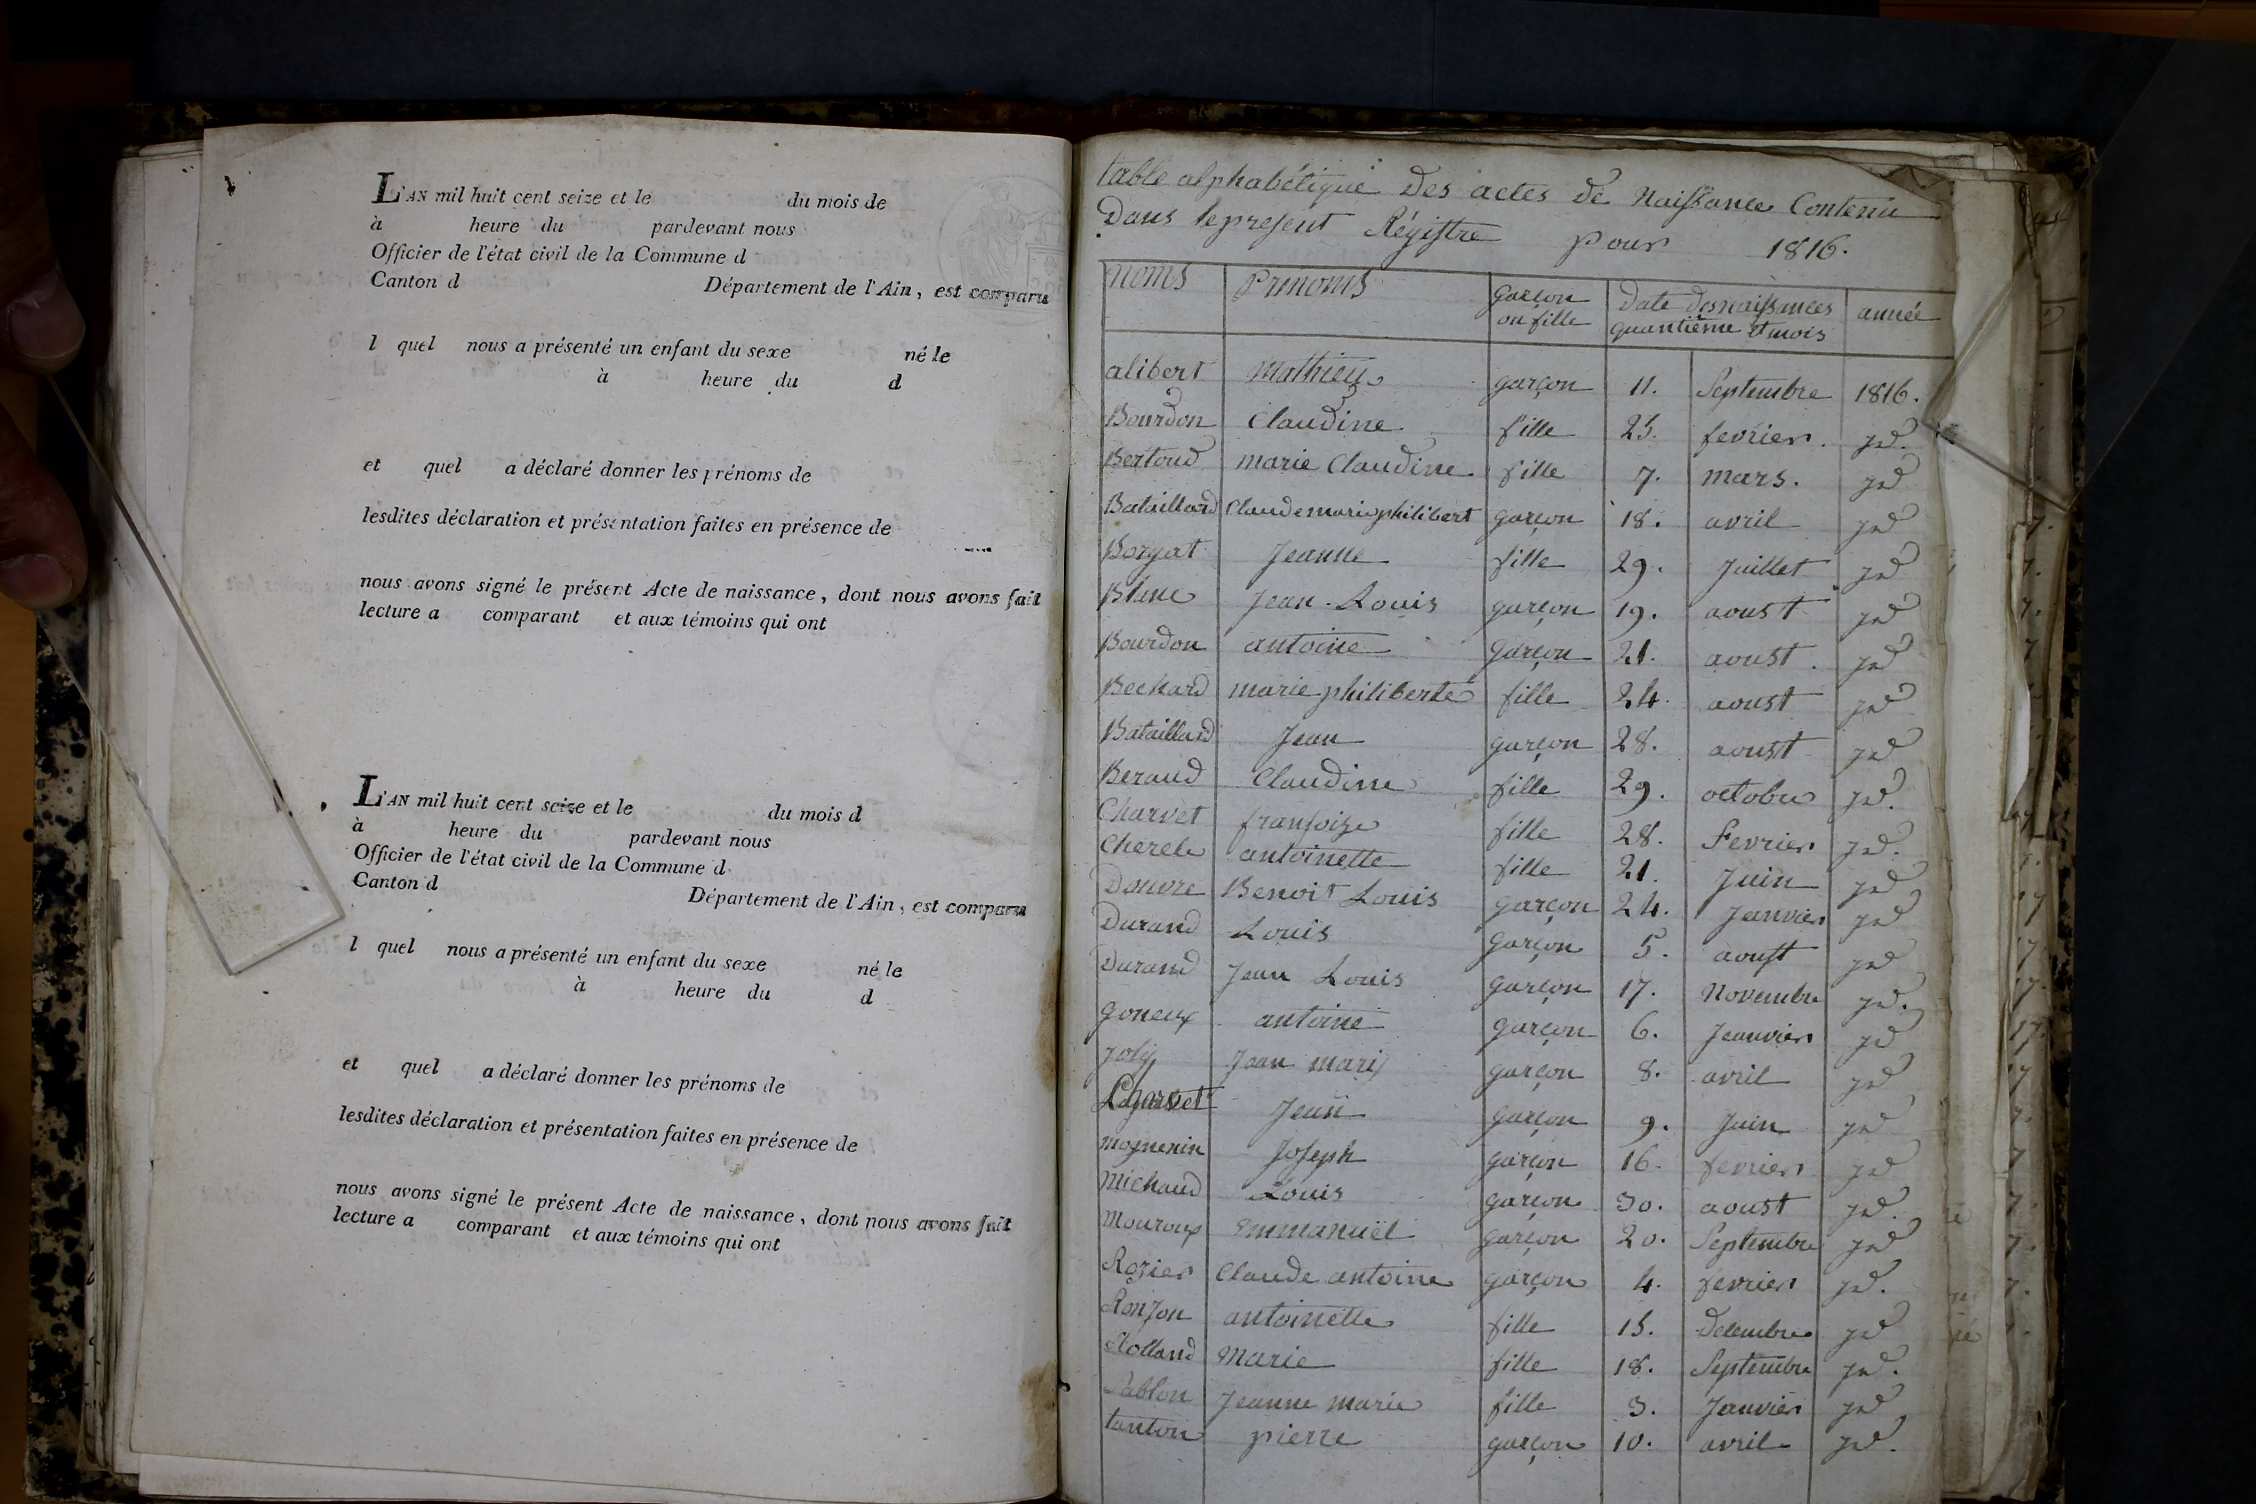 L'AN mil huit cent seize et le du mois de
à heure du pardevant nous
Officier de l'état civil de la Commune d
Canton d Département de l'Ain, est comparu
l quel nous a présenté un enfant du sexe né le
à heure du d
et quel a déclaré donner les prénoms de
lesdites déclaration et présentation faites en présence de
nous avons signé le présent Acte de naissance, dont nous avons fait
lecture a comparant et aux témoins qui ont
L'AN mil huit cent seize et le du mois d
à heure du pardevant nous
Officier de l'état civil de la Commune d
Canton d Département de l'Ain, est comparu
l quel nous a présenté un enfant du sexe né le
à heure du d
et quel a déclaré donner les prénoms de
lesdites déclaration et présentation faites en présence de
nous avons signé le présent Acte de naissance, dont nous avons fait
lecture a comparant et aux témoins qui ont
table alphabétique des actes de Naissance Contenu
Dans le present Régistre pour 1816.
noms Prenoms garçon ou fille Date des naissances quantième et mois année
alibert Mathieu garçon 11. Septembre 1816.
Bourdon Claudine fille 25. fevrier. jd.
Bertoud marie Claudine fille 7. mars. jd
Bataillard Claude marie philibert garçon 18. avril jd
Borgat Jeanne fille 29. Juillet jd
Blanc Jean-Louis garçon 19. aoust jd
Bourdon antoine garçon 21. aoust. jd
Bechard marie philiberte fille 24. aoust jd
Bataillard Jean garçon 28. aoust jd
Beraud Claudine fille 29. octobre jd.
Charvet françoise fille 28. Fevrier jd.
antoinette fille 21. Juin jd
Douvre Benoit Louis garçon 24. Janvier jd
Durand Louis garçon 5. aoust jd
Durand Jean Louis garçon 17. Novembre jd.
goneux antoine garçon 6. Jeanvier jd
joly Jean marij garçon 8. avril jd
Jean garçon 9. Juin jd
mognenin Joseph garçon 16. fevrier jd
michaud Louis garçon 30. aoust jd.
Mouroux Emmanuël garçon 20. Septembre jd
Rozier Claude antoine garçon 4. fevrier jd.
Ronjon antoinette fille 15. Decembre jd
Rolland Marie fille 18. Septembre jd.
Sablon Jeanne marie fille 3. Janvier jd
tanton pierre garçon 10. avril jd.